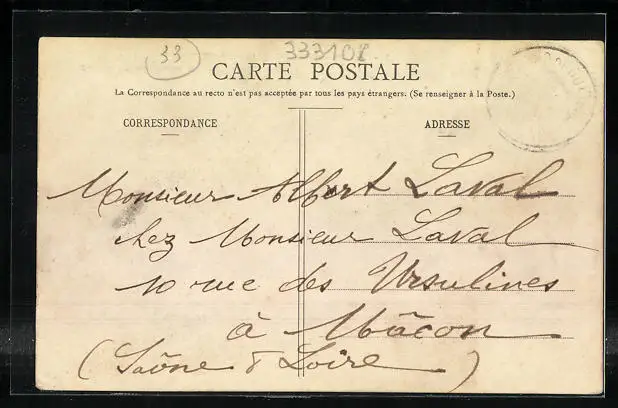 33
333108
CARTE POSTALE
La Correspondance au recto n'est pas acceptée par tous les pays étrangers. (Se renseigner à la Poste.)
CORRESPONDANCE
ADRESSE
Monsieur Albert Laval
chez Monsieur Laval
10 rue des Ursulines
à Mâcon
(Saône & Loire)